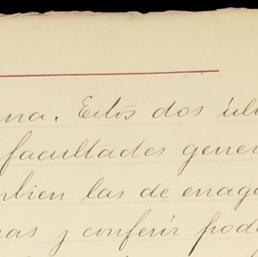 na. Estos dos últ
facultades gener
mbien las de enag
nas y conferir pod